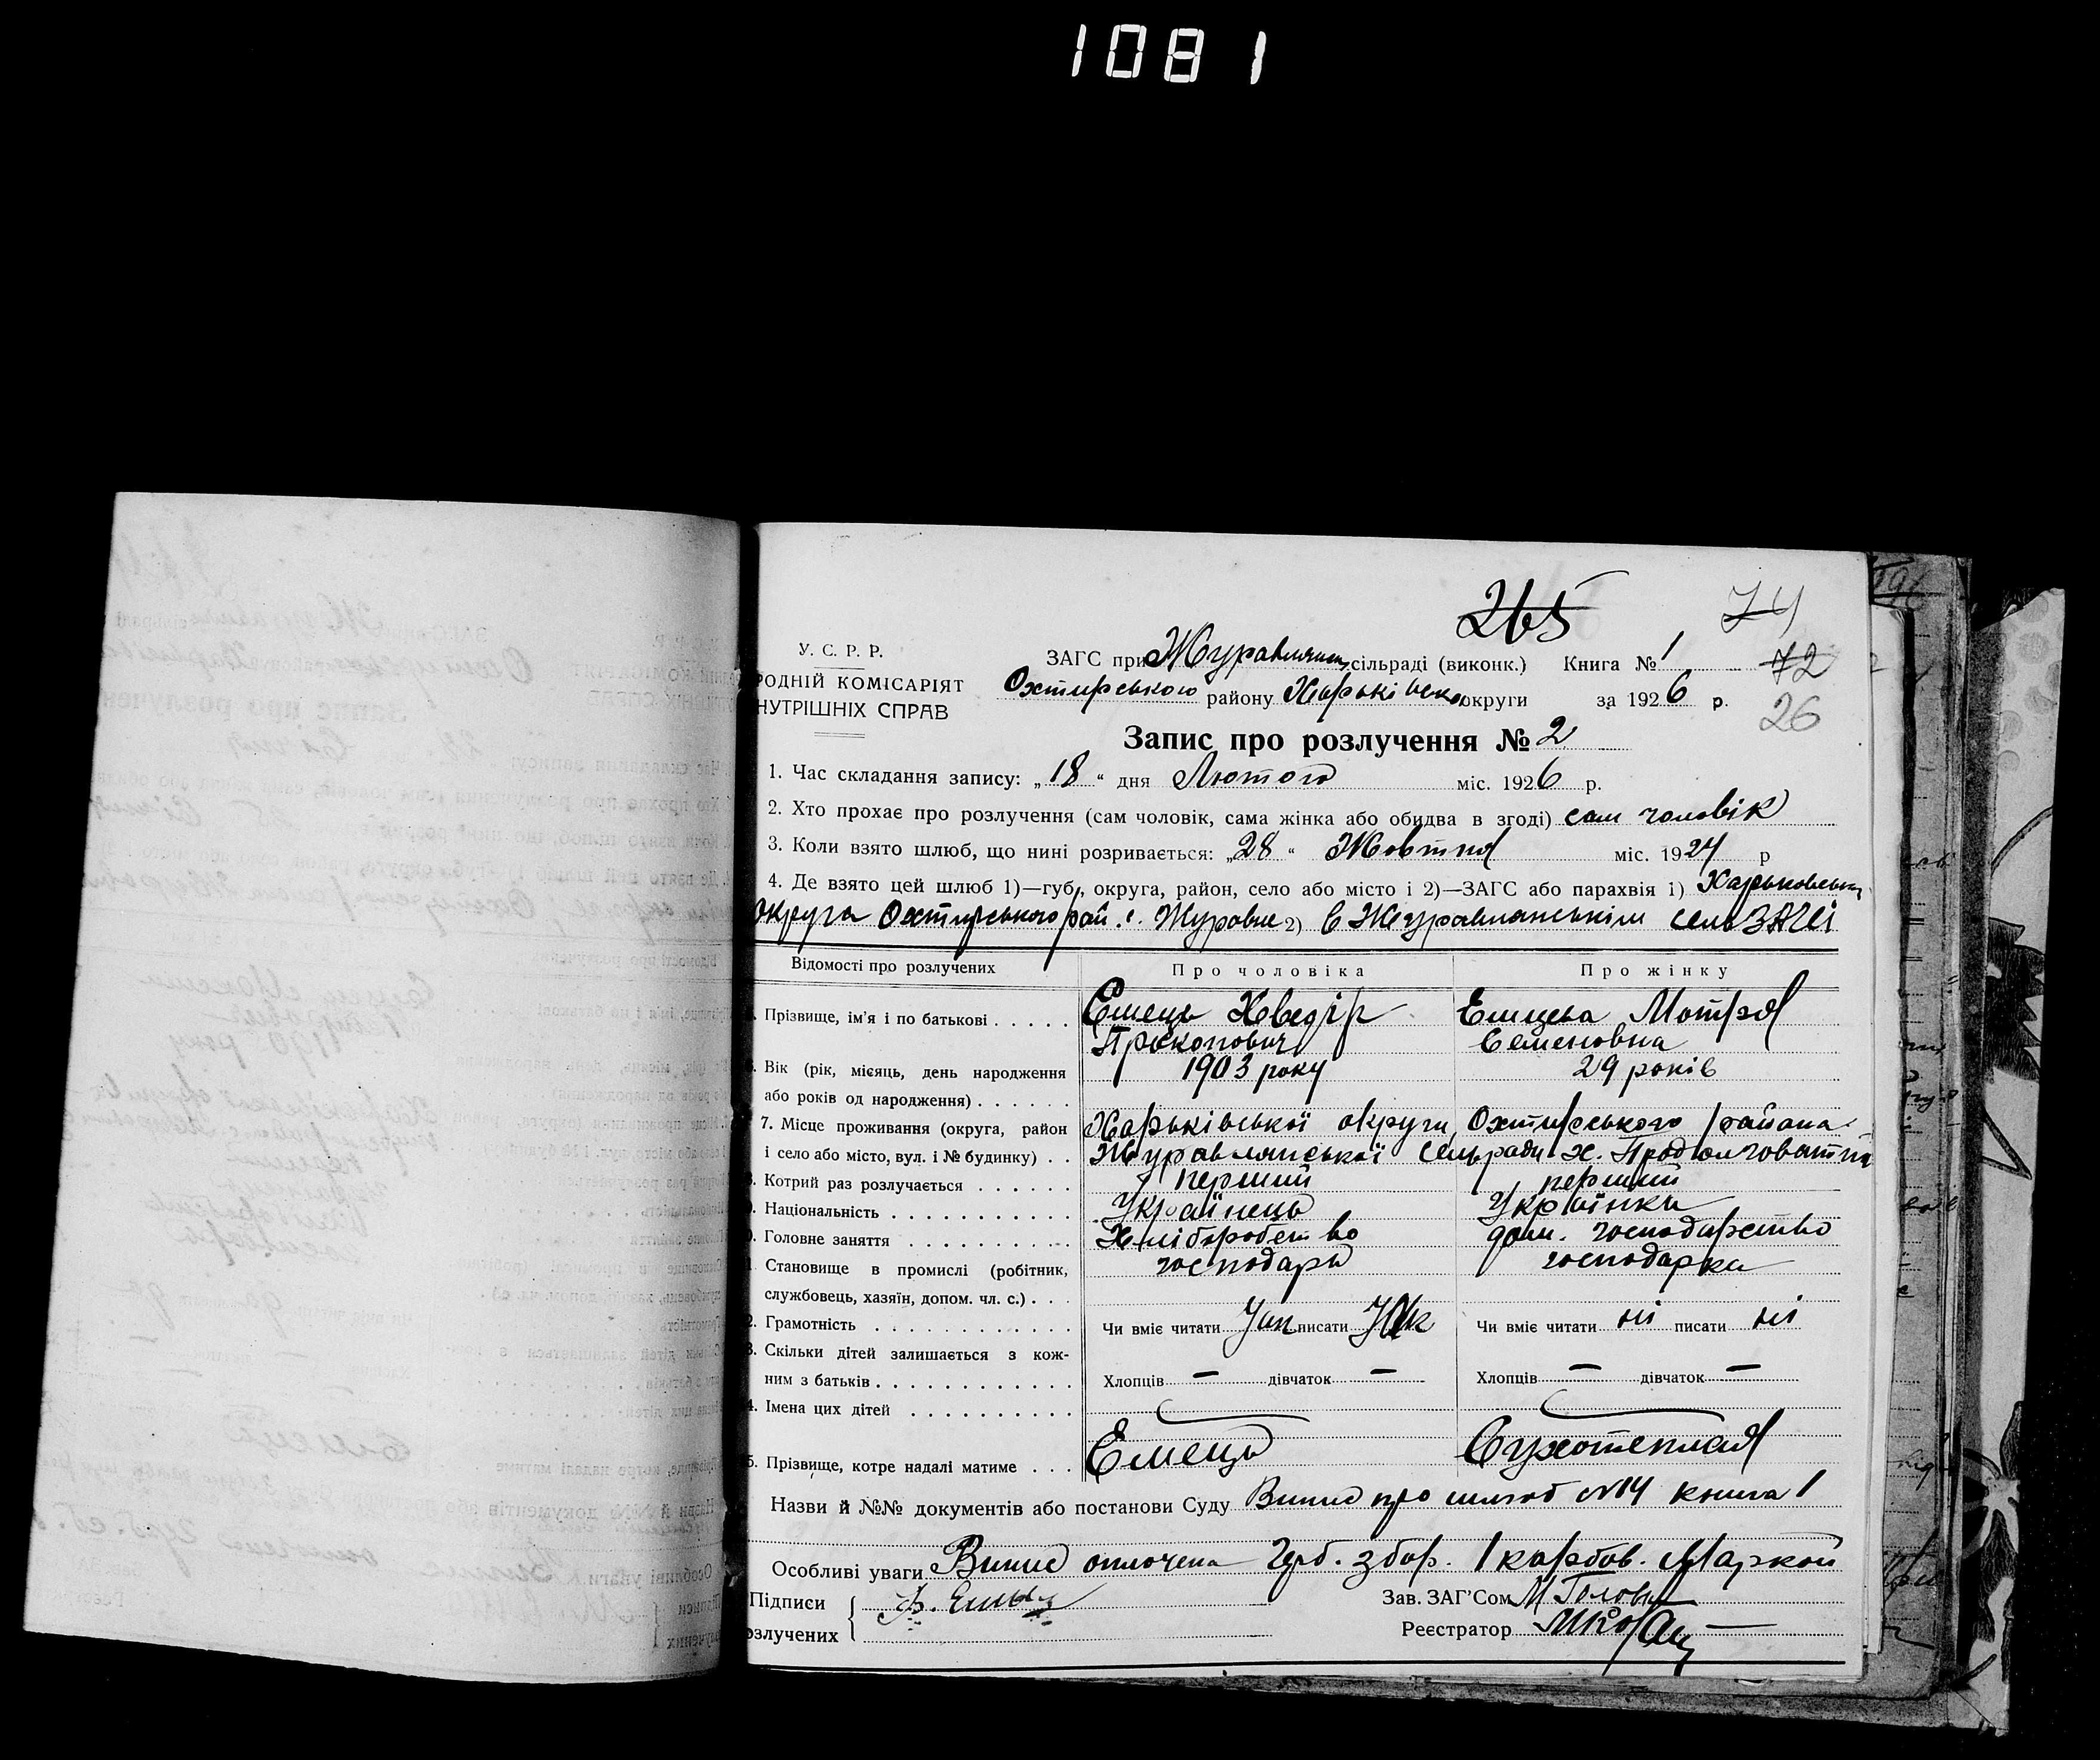 1081
265
74
У. С. Р. Р.
ЗАГС при Журавлянск. сільраді (виконк.) Книга № 1
72
РОДНІЙ КОМІСАРІЯТ
Охтирського району Харьківсько округи за 1926 р.
НУТРІШНІХ СПРАВ
26
Запис про розлучення № 2
1. Час складання запису: „18“ дня Лютого міс. 1926 р.
2. Хто прохає про розлучення (сам чоловік, сама жінка або обидва в згоді) сам чоловік
3. Коли взято шлюб, що нині розривається: „28“ Жовтня міс. 1924 р
4. Де взято цей шлюб 1)—губ., округа, район, село або місто і 2)—ЗАГС або парахвія 1) Харьковськ
округа Охтирського рай. с. Журовне 2) в Журавлянськім сельЗАГСі
Відомості про розлучених Про чоловіка Про жінку
Прізвище, ім'я і по батькові . . . . . Емець Хведір Емцева Мотря
Прокопович Семеновна
Вік (рік, місяць, день народження 1903 року 29 років
або років од народження) . . . . . .
7. Місце проживання (округа, район Харьківської округи, Охтирського района
і село або місто, вул. і № будинку) . . Журавлянської сельради х.
Котрий раз розлучається . . . . . . перший перший
Національність . . . . . . . . . . . Українець Українка
Головне заняття . . . . . . . . . . Хліборобство дом. господарство
Становище в промислі (робітник, господарь господарка
службовець, хазяїн, допом. чл. с.) . . .
Грамотність . . . . . . . . . . . . Чи вміє читати писати Чи вміє читати ні писати ні
Скільки дітей залишається з кож-
ним з батьків . . . . . . . . . . . . Хлопців — дівчаток — Хлопців — дівчаток —
Імена цих дітей . . . . . . . . . .
5. Прізвище, котре надалі матиме . . . Емець Сухотеплая
Назви й №№ документів або постанови Суду Випис про шлюб №14 книга 1
Особливі уваги Випис оплочена Герб. збор. 1 карбов. Маркой
Підписи Ф. Емець Зав. ЗАГ'Сом М Голов
озлучених Реєстратор